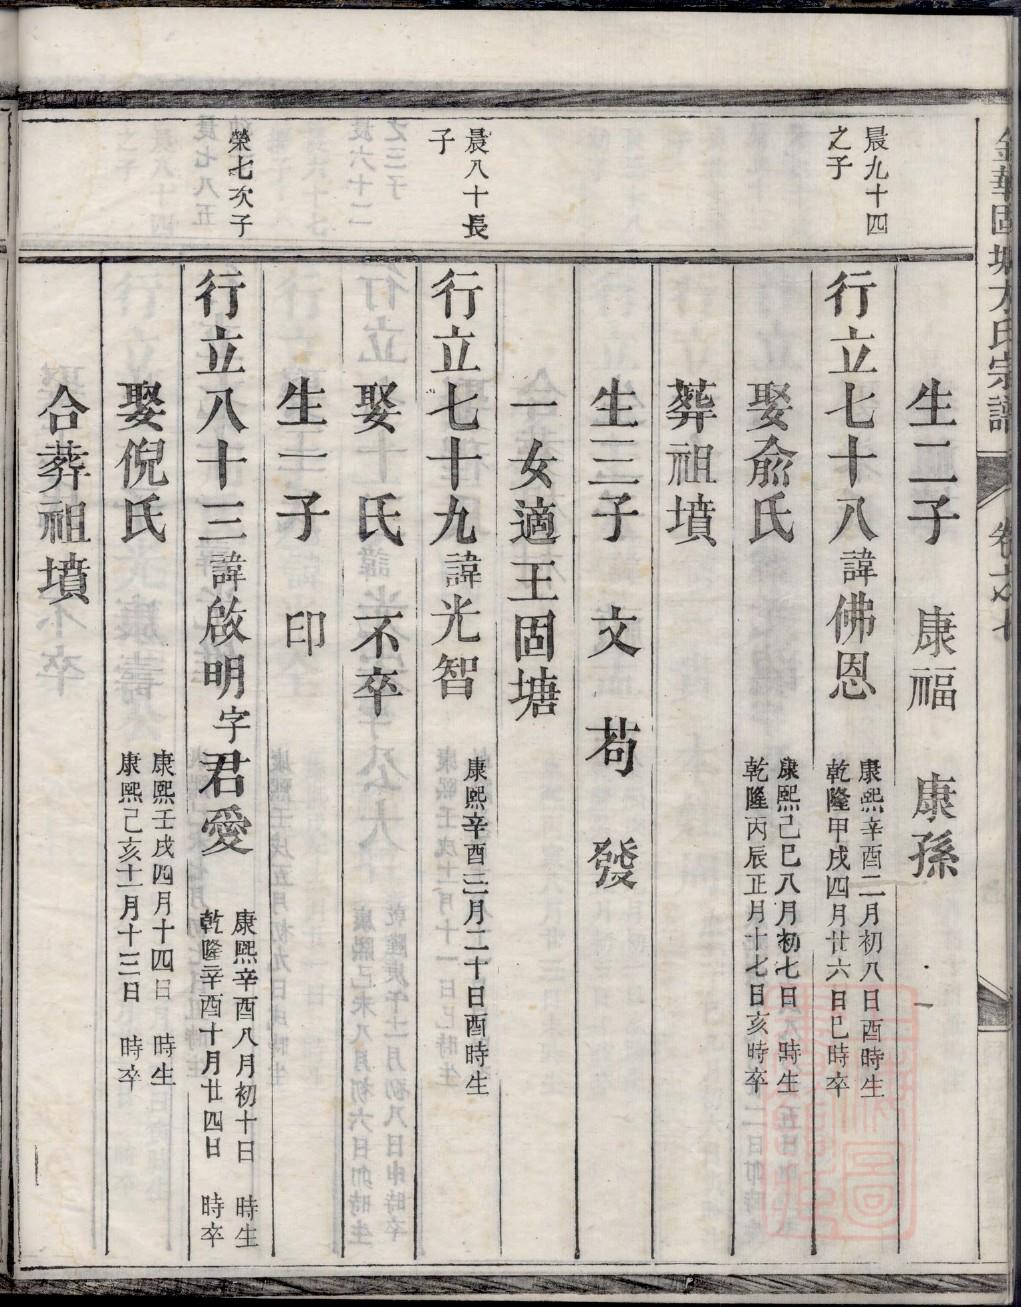 生二子 康福 康孫
晨九十四
之子
行立七十八諱佛恩
康熙辛酉二月初八日酉時生
乾隆甲戌四月廿六日巳時卒
娶俞氏
康熙己巳八月初七日 時生
乾隆丙辰正月十七日亥時卒
葬祖墳
生三子 文 苟 發
一女適王固塘
晨八十長
子
行立七十九諱光智
康熙辛酉三月二十日酉時生
娶 氏 不卒
生一子 印
榮七次子
行立八十三諱啟明字君愛
康熙辛酉八月初十日 時生
乾隆辛酉十月廿四日 時卒
娶倪氏
康熙壬戌四月十四日 時生
康熙己亥十一月十三日 時卒
合葬祖墳